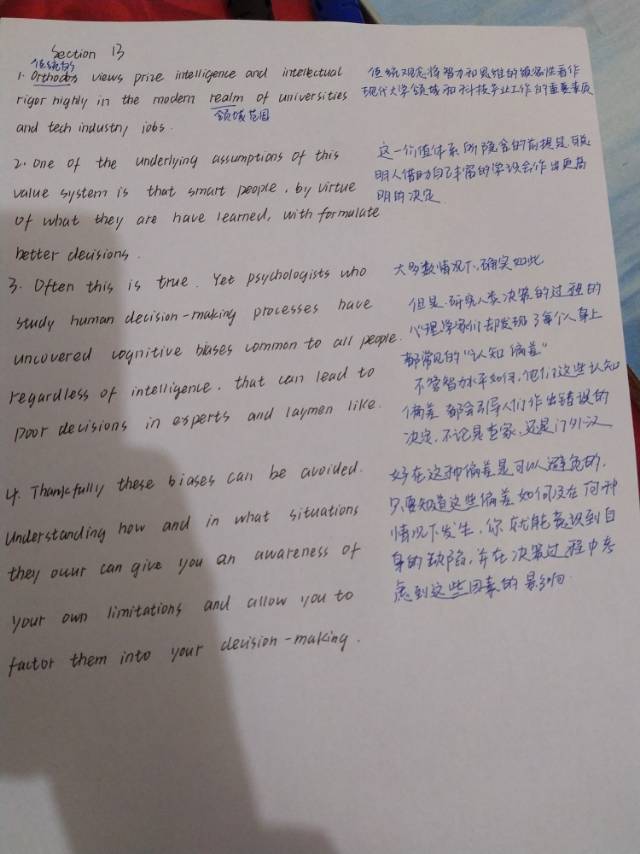 Section 13
传统的
1. Orthodos views prize intelligence and intellectual
rigor highly in the modern realm of universities
领域范围
and tech industry jobs.
传统观念将智力和思维的缜密性看作
现代大学领域和科技专业工作的重要素质
2. One of the underlying assumptions of this
value system is that smart people, by virtue
of what they are have learned, with formulate
better decisions.
这一价值体系所隐含的前提是聪
明人借助自己丰富的学识会作出更高
明的决定
3. Often this is true. Yet psychologists who
study human decision-making processes have
uncovered cognitive biases common to all people.
regardless of intelligence. that can lead to
poor decisions in experts and laymen like.
大多数情况下,确实如此
但是.研究人类决策的过程的
心理学家们却发现了每个人身上
都常见的"认知偏差"
不管智力水平如何,他们这些认知
偏差都会引导人们作出错误的
决定,不论是专家,还是门外汉
4. Thankfully these biases can be avoided.
Understanding how and in what situations
they ouur can give you an awareness of
your own limitations and allow you to
factor them into your decision-making.
好在这种偏差是可以避免的,
只要知道这些偏差如何及在何种
情况下发生,你就能意识到自
身的缺陷,并在决策过程中考
虑到这些因素的影响